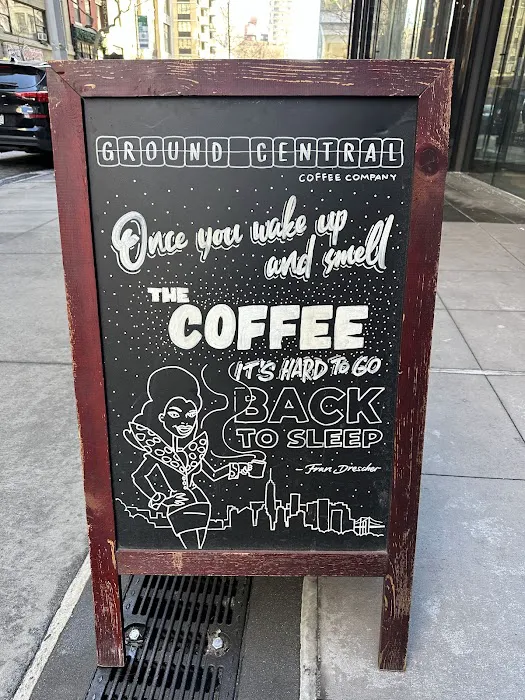 GROUND CENTRAL
COFFEE COMPANY
Once you wake up
and smell
THE
COFFEE
IT'S HARD TO GO
BACK
TO SLEEP
- Fran Drescher